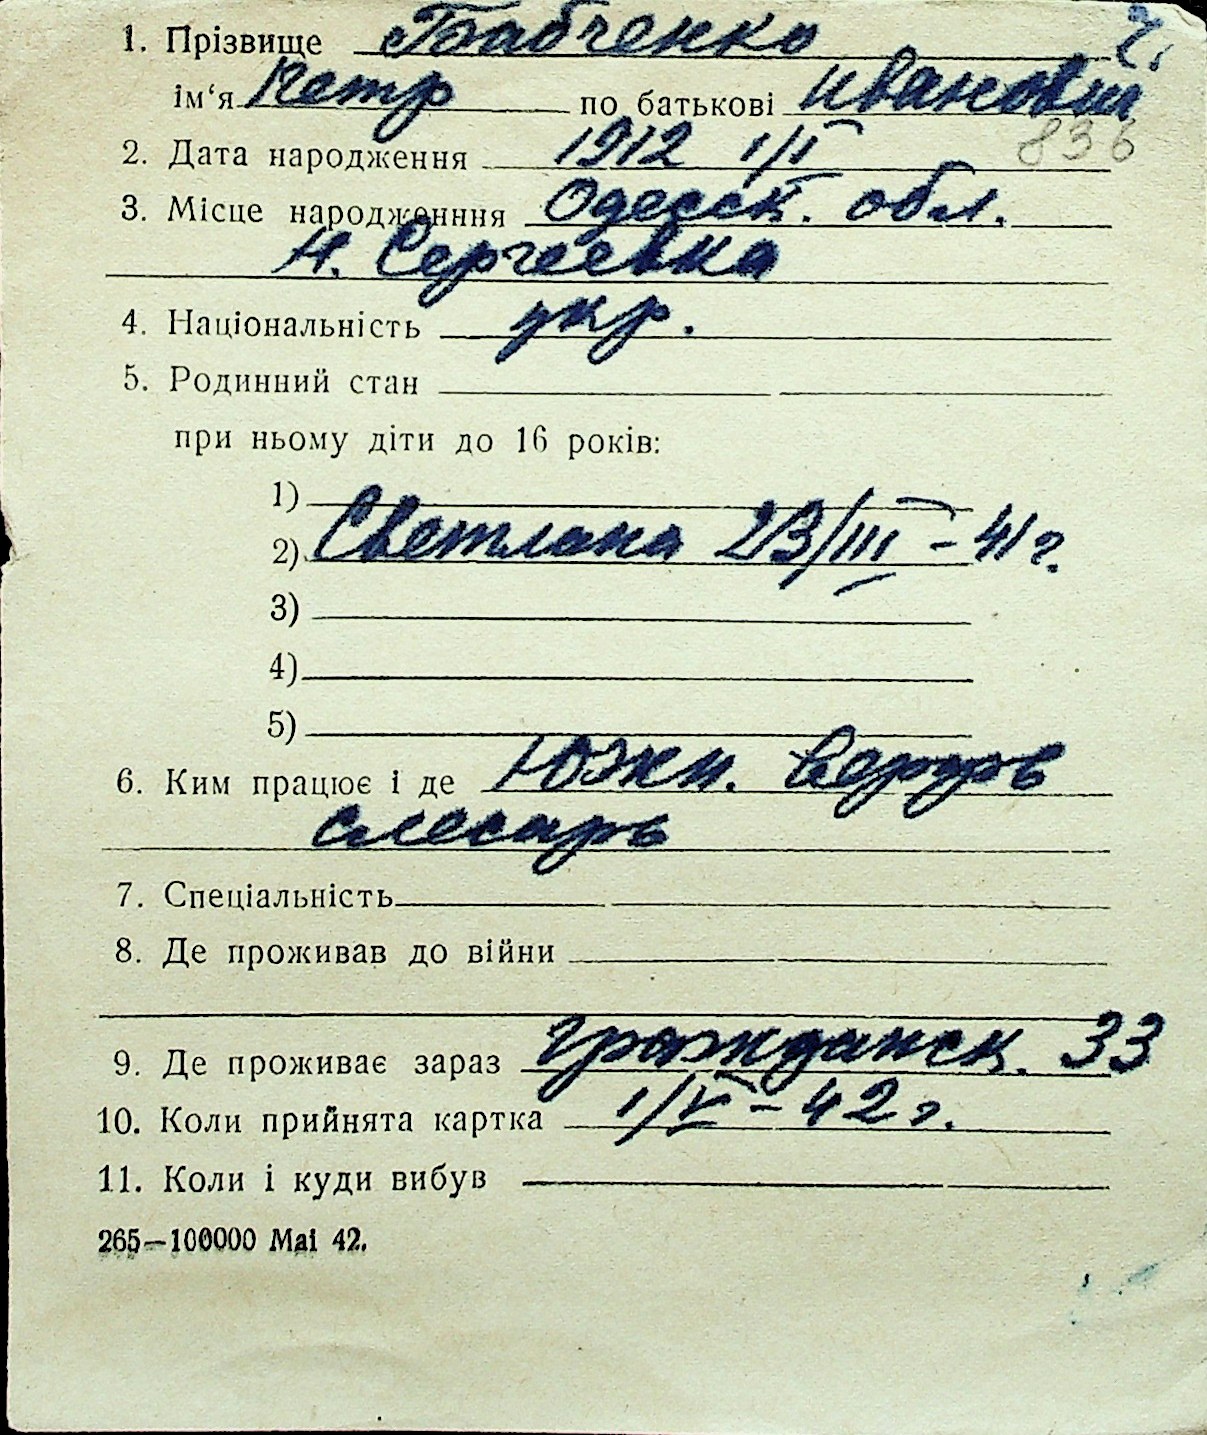 1. Прізвище Бабченко Ч.
ім‘я Петр по батькові Иванович
836
2. Дата народження 1912 1/I
3. Місце народженння Одесск. обл.
Н. Сергеевка
4. Національність укр.
5. Родинний стан
при ньому діти до 16 років:
1)
2) Светлана 23/III - 41 г.
3)
4)
5)
6. Ким працює і де Южн. верфь
слесарь
7. Спеціальність
8. Де проживав до війни
9. Де проживає зараз Гражданск. 33
10. Коли прийнята картка 1/V - 42 г.
11. Коли і куди вибув
265—100000 Mai 42.